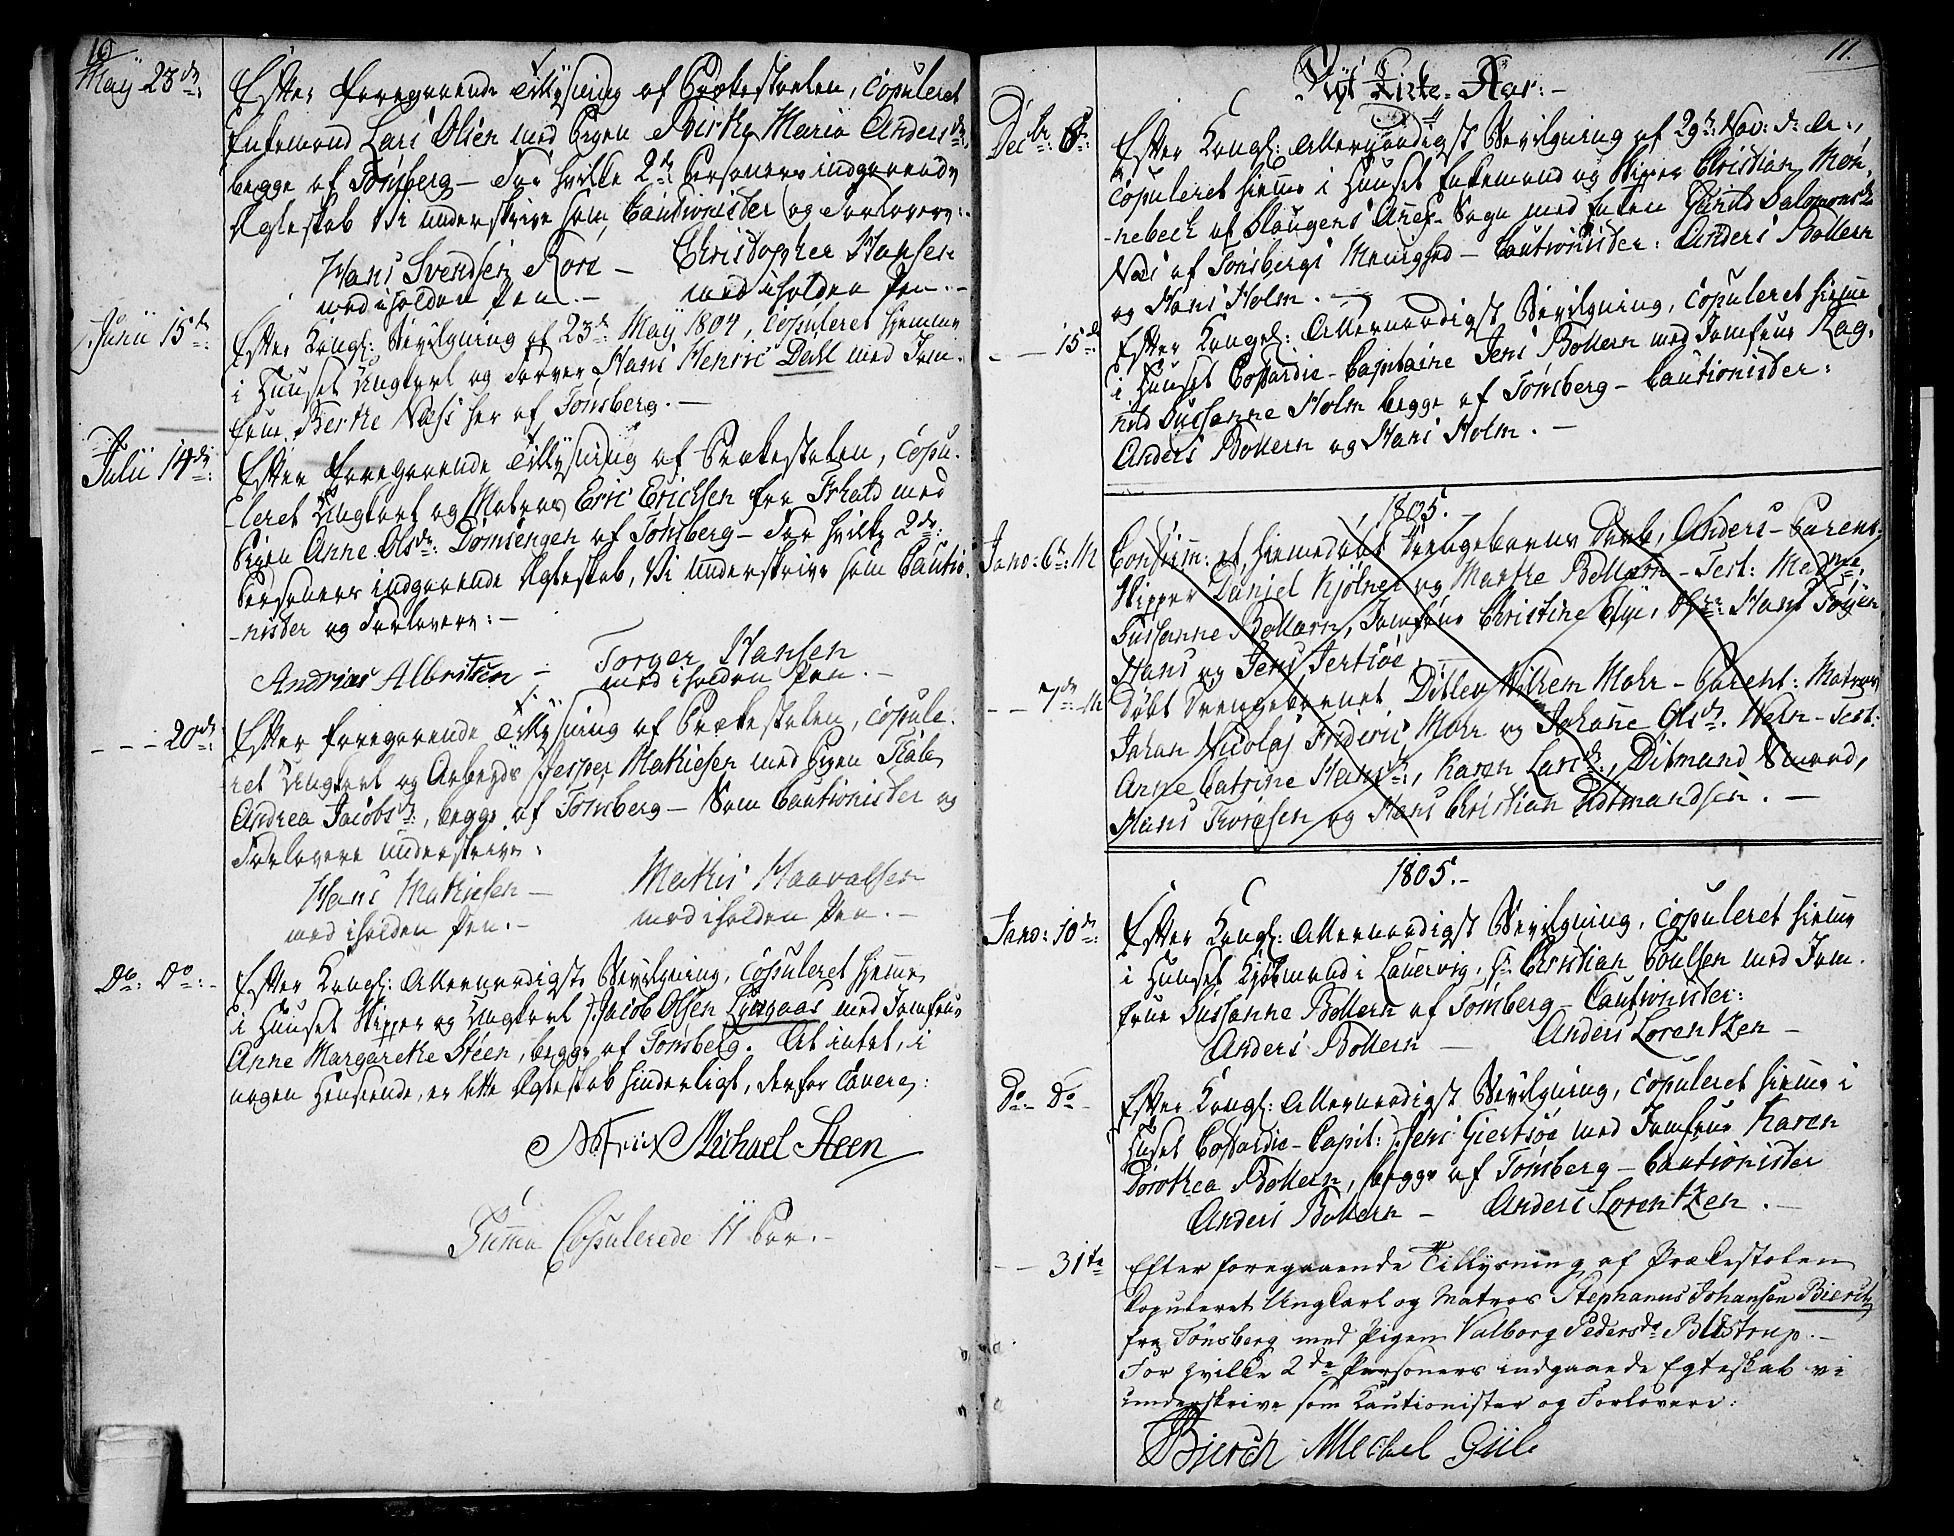 10
May 23de:
Efter foregaaende Tillysning af Prækestoelen, Copuleret
Enkemand Lars Olsen med Pigen Birthe Maria Andersdr.,
begge af Tønsberg – For hvilke 2de Personers indgaaende
Ægteskab Vi underskrive som Cautionister og Forlovere:
Hans Svendsen Rørs – Christopher Hansen
med iholden Pen. – med iholden Pen. –
Junii 15de:
Efter Kongl: Bevilgning af 23de May 1804, Copuleret hjemme
i Huuset Ungkarl og Farver Hans Henric Dahl med Jom-
frue Berthe Næss her af Tønsberg. –
Julii 14de:
Efter foregaaende Tillysning af Prækestolen, Copu-
leret Ungkarl og Matros Eric Erichsen fra Frhald med
Pigen Anne Olsdr: Domsengen af Tønsberg – For hvilke 2de:
Personers indgaaende Ægteskab, Vi underskrive som Cautio-
nister og Forlovere: –
Andrias Albritsen – Torger Hansen
med iholden Pen. –
– – – 20de:
Efter foregaaende Tillysning af Prækestolen, Copule-
ret Ungkarl og Arbeyds Jesper Mathiesen med Pigen
Andrea Jacobsdr:, begge af Tønsberg – Som Cautionister og
Forlovere underskrive:
Hans Mathiesen – Mathis Haavalsen
med iholden Pen. – med iholden Pen. –
Do: Do: –
Efter Kongl: Allernaadigste Bevilgning, Copuleret hjemme
i Huuset Skipper og Ungkarl Jacob Olsen Lyegaas med Jomfrue
Anne Margarethe Steen, begge af Tønsberg. At intet, i
nogen Henseende, er dette Ægteskab hinderligt, derfor Cavere:
Michael Steen
Summa Copulerede 11 Par. –
11.
Nyt Kirke-Aar: –
Decbr: 6te:
Efter Kongl: Allernaadigst Bevilgning af 29de: Nov: d: A:,
Copuleret hiemme i Huuset Enkemand og Skipper Christian Møn-
nebech af Slaugens Anex-Sogn med Enken Gunild Salomonsdr
Næs af Tønsbergs Menighed – Cautionister: Anders Bollern
og Hans Holm. –
– – 15de
Efter Kongel: Allernaadigst Bevilgning, Copuleret hiemme
i Huuset Coffardie-Capitaine Jens Bollern med Jomfrue Rag-
nild Sussanne Holm begge af Tønsberg – Cautionister:
Anders Bollern og Hans Holm. –
1805. –
Jano: 6te: M
Confirm: et hiemedøbt Drengebarns Daab, Anders – Parent:
Skipper Daniel Kjølner og Marthe Bollern – Test: Madme:
Sussanne Bollern, Jomfrue Christine Elye, Hans Foyen
Hans og Jens Jertsøe. –
– – 7de: M
Døbt Drengebarnet Ditlev Wilhem Mohr – Parent: Matros
Johan Nicolaj Frideric Mohr og Johanne Olsdr. Wein – Test:
Anne Catrine Hansdr:, Karen Larsdr:, Ditmand Smaad,
Hans Thoresen og Hans Christian Ditmandsen. –
1805. –
Jano: 10de:
Efter Kongl: Allernaadigst Bevilgning, Copuleret hiemme
i Huuset Kjøbmand i Laurvig, Hr: Christian Poulsen med Jom-
frue Sussanne Bollern af Tønsberg – Cautionister:
Anders Bollern – Anders Lorentzen –
Do: – Do –
Efter Kongl: Allernaadigst Bevilgning, Copuleret hiemme i
Huset Coffardie-Capit: Jens Giertsøe med Jomfrue Karen
Dorothea Bollern, begge af Tønsberg – Cautionister
Anders Bollern – Anders Lorentzen. –
– – 31te
Efter foregaaende Tillysning af Prækestolen
Copuleret Ungkarl og Matros Stephanus Johansen Bierch
fra Tønsberg med Pigen Valborg Pedersdr Blistrup. –
For hvilke 2de Personers indgaaende Egteskab vi
underskrive som Kautionister og Forlovere:
Bierch Mechel Giil